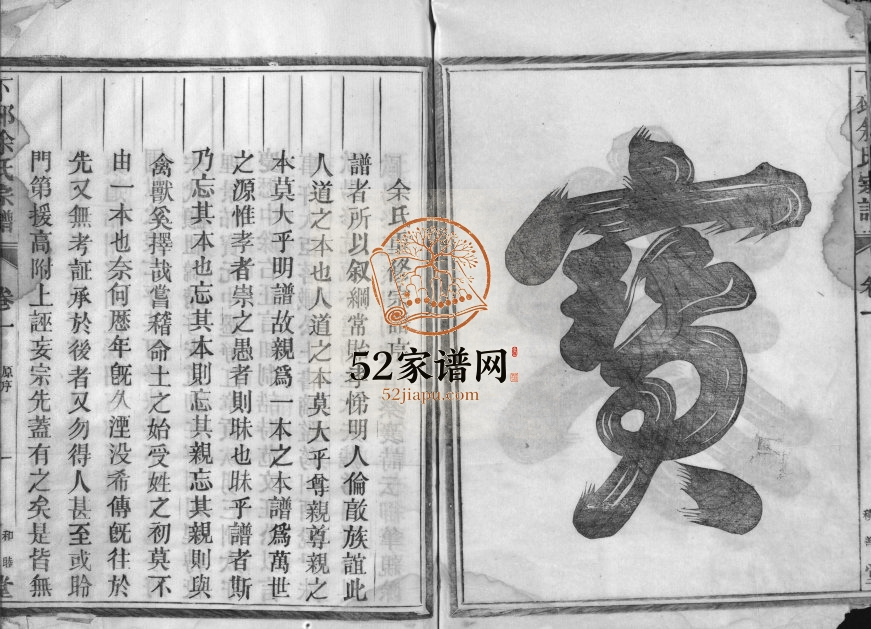 寳
余氏重修宗譜序
譜者所以叙綱常貽孝悌明人倫敵族誼此
人道之本也人道之本莫大乎尊親尊親之
本莫大乎明譜故親爲一本之本譜爲萬世
之源惟孝者崇之愚者則昧也昧乎譜者斯
乃忘其本也忘其本則忘其親忘其親則與
禽獸奚擇哉嘗稽命土之始受姓之初莫不
由一本也奈何歴年旣久湮没希傳旣往於
先又無考証承於後者又勿得人甚至或聆
門第援高附上誣妄宗先蓋有之矣是皆無
下邳余氏宗譜 卷一 原序 一 和睦堂
52家谱网
52jiapu.com